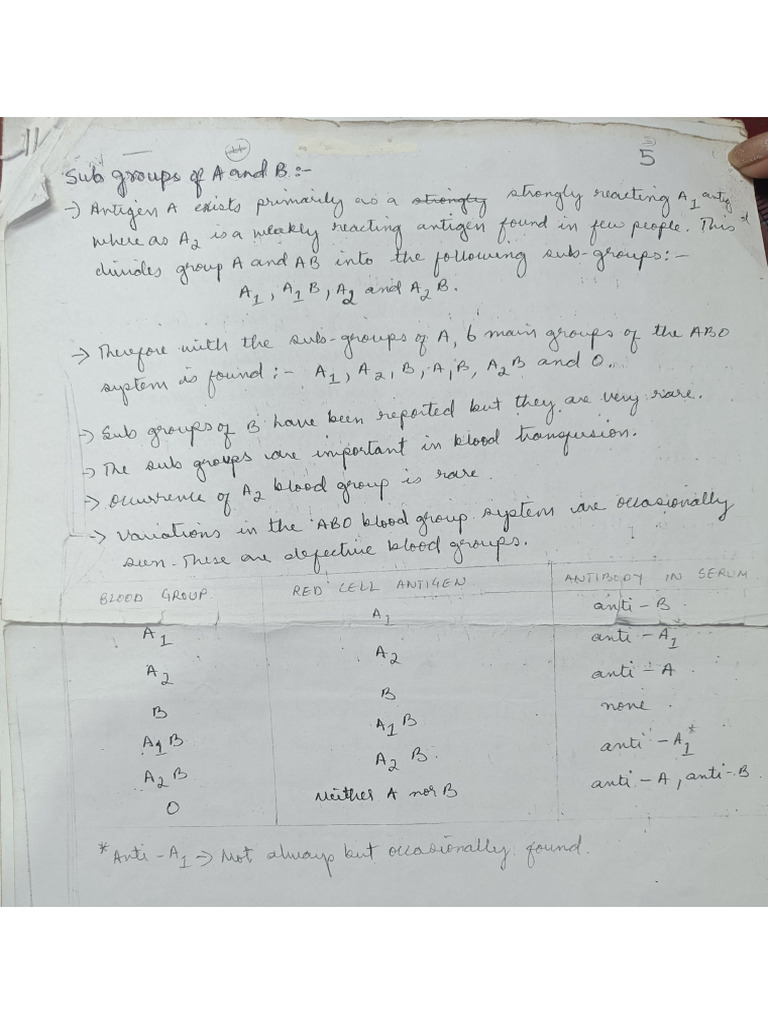 11
5
Sub groups of A and B:-
→ Antigen A exists primarily as a strongly strongly reacting A1 antig
where as A2 is a weakly reacting antigen found in few people. This
divides group A and AB into the following sub-groups:-
A1, A1B, A2 and A2B.
→ Therefore with the sub-groups of A, 6 main groups of the ABO
system is found :- A1, A2, B, A1B, A2B and O.
→ Sub groups of B have been reported but they are very rare.
→ The sub groups are important in blood transfusion.
→ Occurrence of A2 blood group is rare.
→ Variations in the ABO blood group system are occasionally
seen. These are defective blood groups.
BLOOD GROUP RED CELL ANTIGEN ANTIBODY IN SERUM
A1 A1 anti-B
A2 A2 anti-A1*
B B anti-A
A1B A1B none
A2B A2B. anti-A1*
O Neither A nor B anti-A, anti-B
* Anti-A1 → Not always but occasionally found.